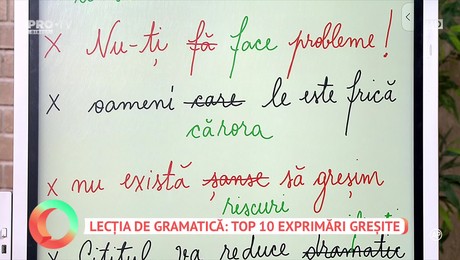 PRO•TV
X Nu-ți fă face probleme!
X oameni care le este frică
cărora
X nu există șanse să greșim
riscuri
LECȚIA DE GRAMATICĂ: TOP 10 EXPRIMĂRI GREȘITE
Cititul va reduce dramatic